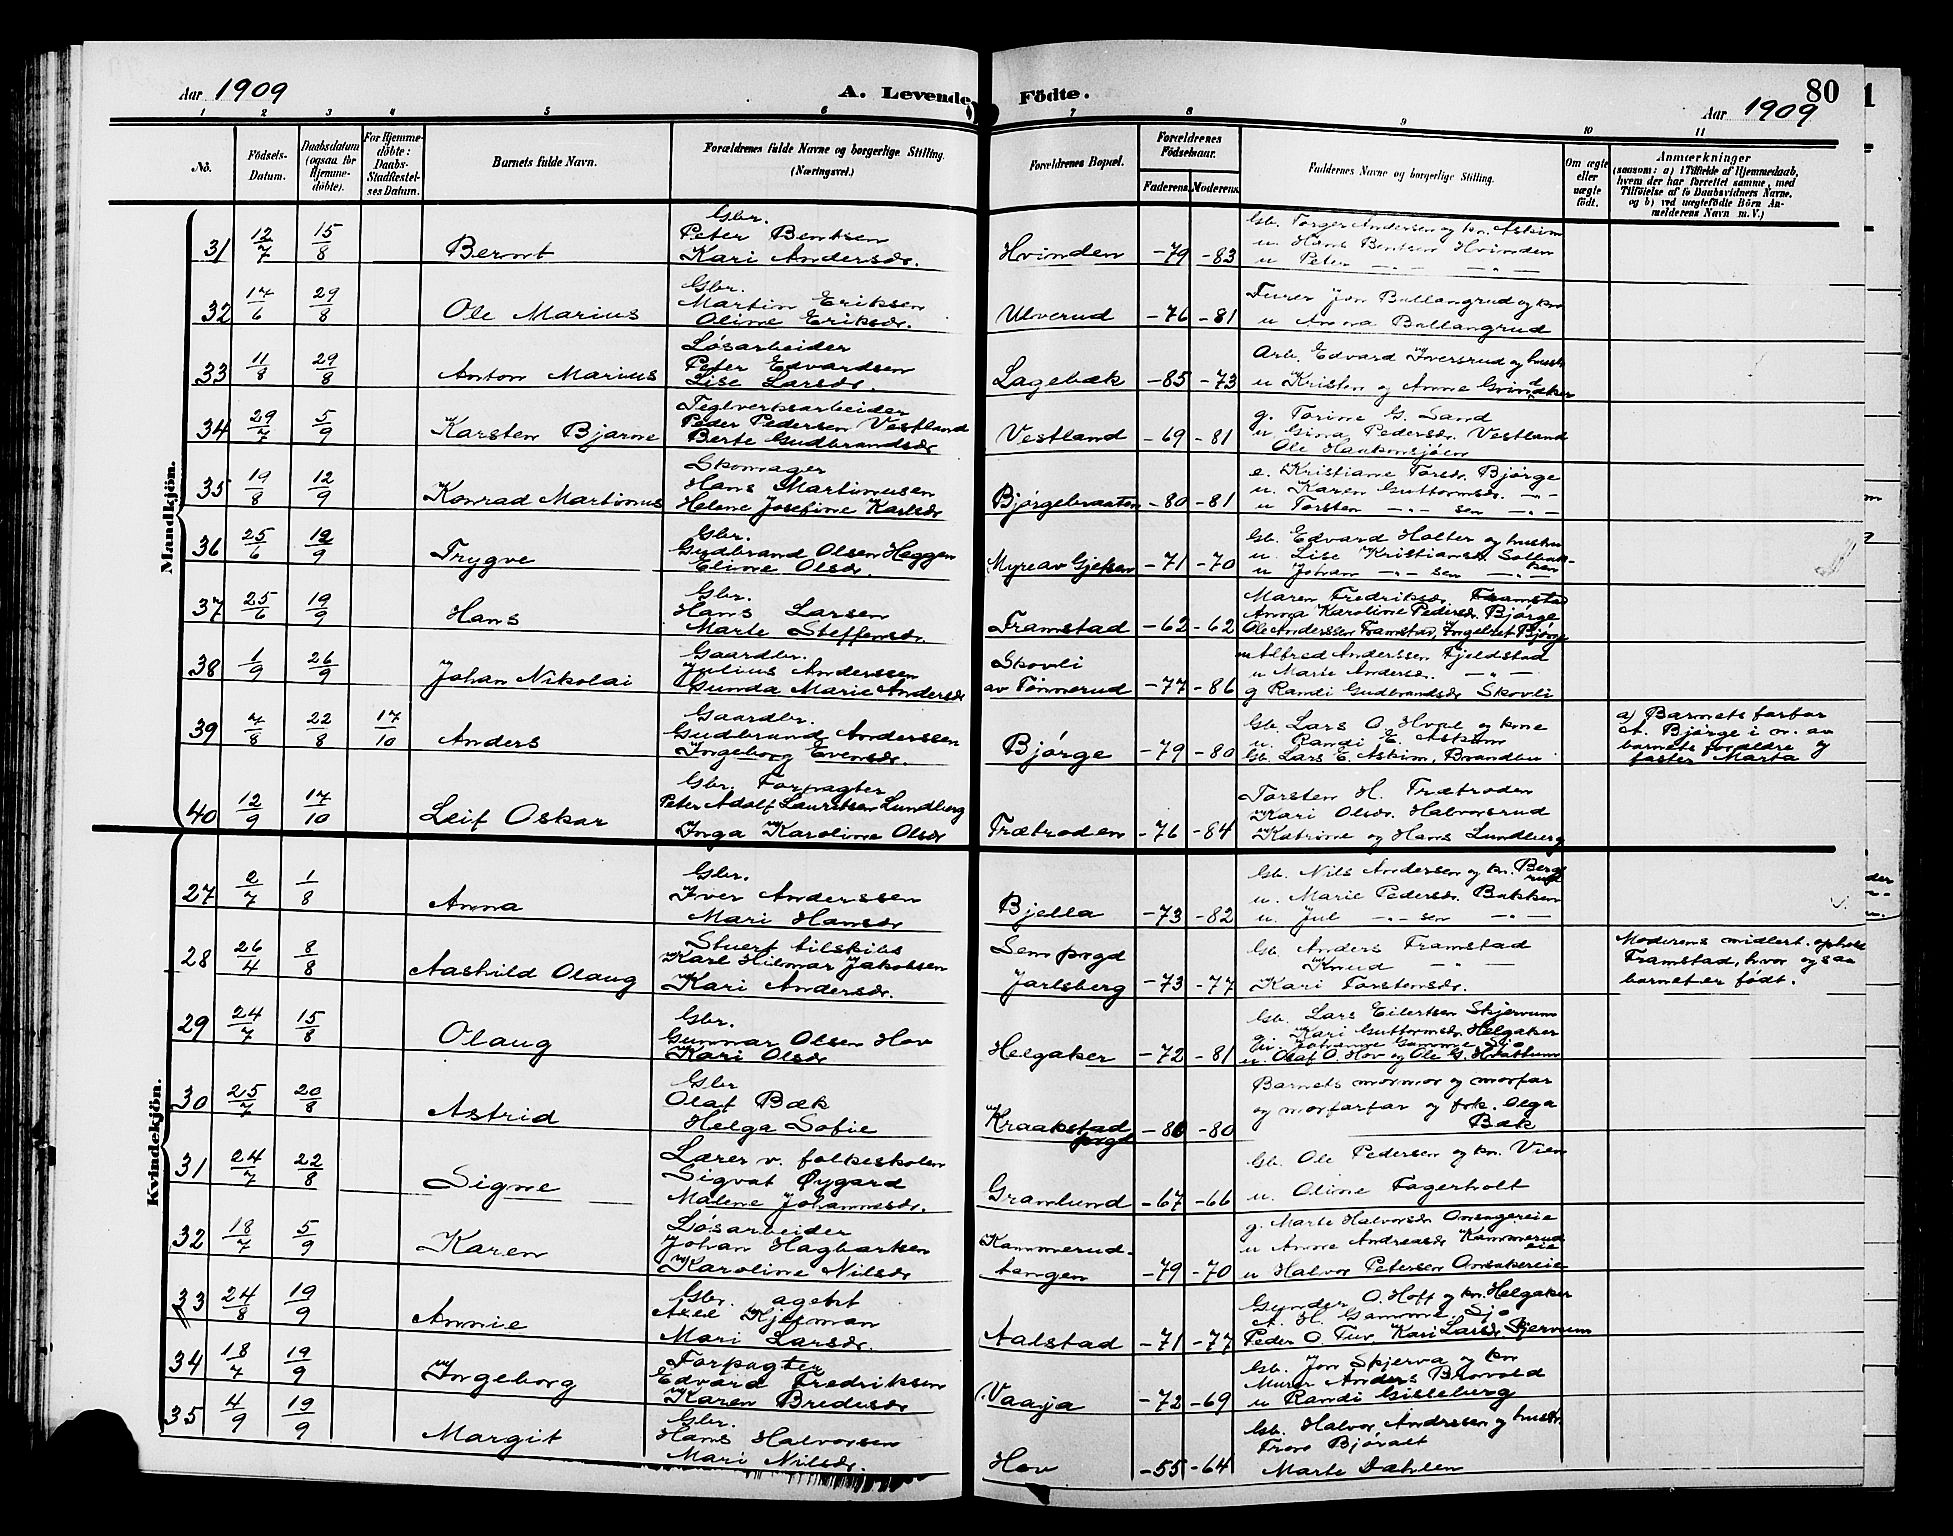 Aar 1909
A. Levende Födte.
80
Aar 1909
1 2 3 4 5 6 7 8 9 10 11
No.
Födsels-Datum.
Daabsdatum (ogsaa for Hjemme-döbte).
For Hjemme-döbte: Daabs-Stadfæstel-ses Datum.
Barnets fulde Navn.
Forældrenes fulde Navne og borgerlige Stilling. (Næringsvei.)
Forældrenes Bopæl.
Forældrenes Födselsaar.
Faderens. Moderens.
Faddernes Navne og borgerlige Stilling.
Om ægte eller uægte födt.
Anmærkninger
(saasom: a) i Tilfælde af Hjemmedaab, hvem der har forrettet samme, med Tilföielse af to Daabsvidners Navne. og b) ved uægtefödte Börn An-melderens Navn m. V.)
Mandkjön.
31 12/7 15/8 Bernt
Gbr.
Peter Bentsen
Kari Andersdr.
Hvinden -79 -83
Gb. Torger Andersen og kn. Askim
u. Hans Bentsen Hvinden
u Peter -"- -"-
32 17/6 29/8 Ole Marius
Gbr.
Martin Eriksen
Oline Eriksdr.
Ulverud -76 -81
Furer Jon Bullangrud og kn
u Anna Bullangrud
33 11/8 29/8 Anton Marius
Løsarbeider
Peter Edvardsen
Lise Larsdr.
Lagebæk -85 -73
Arb. Edvard Iversrud og hustr
u Kristen og Anne Grindaker
34 29/7 5/9 Karsten Bjarne
Teglverksarbeider
Peder Pedersen Vestland
Berte Gudbrandsdr
Vestland -69 -81
g. Torine G. Sand
u Gina Pedersdr. Vestland
Ole Haakonsjøen
35 19/8 12/9 Konrad Martinius
Skomager
Hans Martinusen
Helene Josefine Karlsdr
Bjørgebraaten -80 -81
e. Kristiane Torsdr. Bjørge
u. Karen Guttormsdr. -"-
u Torsten -"- sen -"-
36 25/6 12/9 Trygve
Gbr.
Gudbrand Olsen Heggen
Eline Olsdr.
Myre av Gjefsen -71 -70
Gb. Edvard Holter og hustru
u. Lise Kristiansdr. Solbak-
ken
u Johan -"- sen -"-
37 25/6 19/9 Hans
Gbr.
Hans Larsen
Marte Steffensdr.
Framstad -62 -62
Maren Fredriksdr. Framstad
Anna Karoline Pedersdr. Bjørge
Ole Anderssen Framstad, Ingebret Bjørge
38 1/9 26/9 Johan Nikolai
Gaardbr.
Julius Anderssen
Gunda Marie Andersdr
Skovli
av Tømmerud -77 -86
m Alfred Anderssen Fjeldstad
u Marie Andersdr. -"-
g Randi Gudbrandsdr Skovli
39 7/8 22/8 17/10 Anders
Gaardbr.
Gudbrand Anderssen
Ingeborg Evensdr.
Bjørge -79 -80
Gb. Lars O. Hval og kone
u. Randi E. Askim
Gb. Lars E. Askim, Brandbu
a) Barnets farfar
A. Bjørge i ov. av
barnets forældre og
faster Marta
40 12/9 17/10 Leif Oskar
Gbr. Forpagter
Peter Adolf Lauritsen Lundberg
Inga Karoline Olsdr
Trætroden -76 -84
Torsten H. Trætroden
Kari Olsdr. Halvorsrud
Katrine og Hans Lundberg
Kvindekjön.
27 2/7 1/8 Anna
Gbr.
Iver Anderssen
Mari Hansdr
Bjella -73 -82
Gb. Nils Andersen og kn. Berg
rud
u. Marie Pedersdr. Bakken
u. Jul -"- sen -"-
28 26/4 8/8 Aashild Olaug
Stuert tilskibs
Karl Hilmar Jakobsen
Kari Andersdr.
Sem prgd
Jarlsberg -73 -77
Gb Anders Framstad
Knud -"-
Kari Torstensdr.
Moderens midlert. ophold
Framstad, hvor ogsaa
barnet er født.
29 24/7 15/8 Olaug
Gbr.
Gunnar Olsen Hov
Kari Olsdr
Helgaker -72 -81
Gb. Lars Eilertsen Skjervum
Kari Guttormsdr Helgaker
Ei. Johanne Gamme Sjo
u. Olaf O. Hov og Ole G. Hvattum
30 25/7 20/8 Astrid
Gbr
Olaf Bæk
Helga Sofie
Kraakstad
prgd -80 -80
Barnets mormor og morfar
og morfarfar og frk. Olga
Bæk
31 24/7 22/8 Signe
Lærer v. folkeskolen
Sigvat Øygard
Malene Johannesdr.
Granlund -67 -66
Gb. Ole Pedersen og kn. Vien
u. Oline Fagerholt
32 18/7 5/9 Karen
Løsarbeider
Johan Hagbartsen
Karoline Nilsdr
Kammerud-
tangen -79 -70
g. Marte Halvorsdr Onsagereie
u Anne Andreasdr Kammerud
eie
u Halvor Petersen Onsakereie
33 24/8 19/9 Annie
Gbr. agent
Axel Kjelman
Mari Larsdr.
Aalstad -71 -77
Gunder O. Hoff og kn. Helgaker
A. H. Gamme, Sjo
Peder O. Tuv, Kari Larsdr Skjervum
34 18/7 19/9 Ingeborg
Forpagter
Edvard Fredriksen
Karen Bredesdr
Vaarja -72 -69
Gb. Jon Skjerva og kn
Murer Anders Brovold
u Randi Gisleberg
35 4/9 19/9 Margit
Gbr.
Hans Halvorsen
Mari Nilsdr.
Hov -55 -64
Gb. Halvor Andresen og hustr.
Tron Bjøralt
Marte Dæhlen